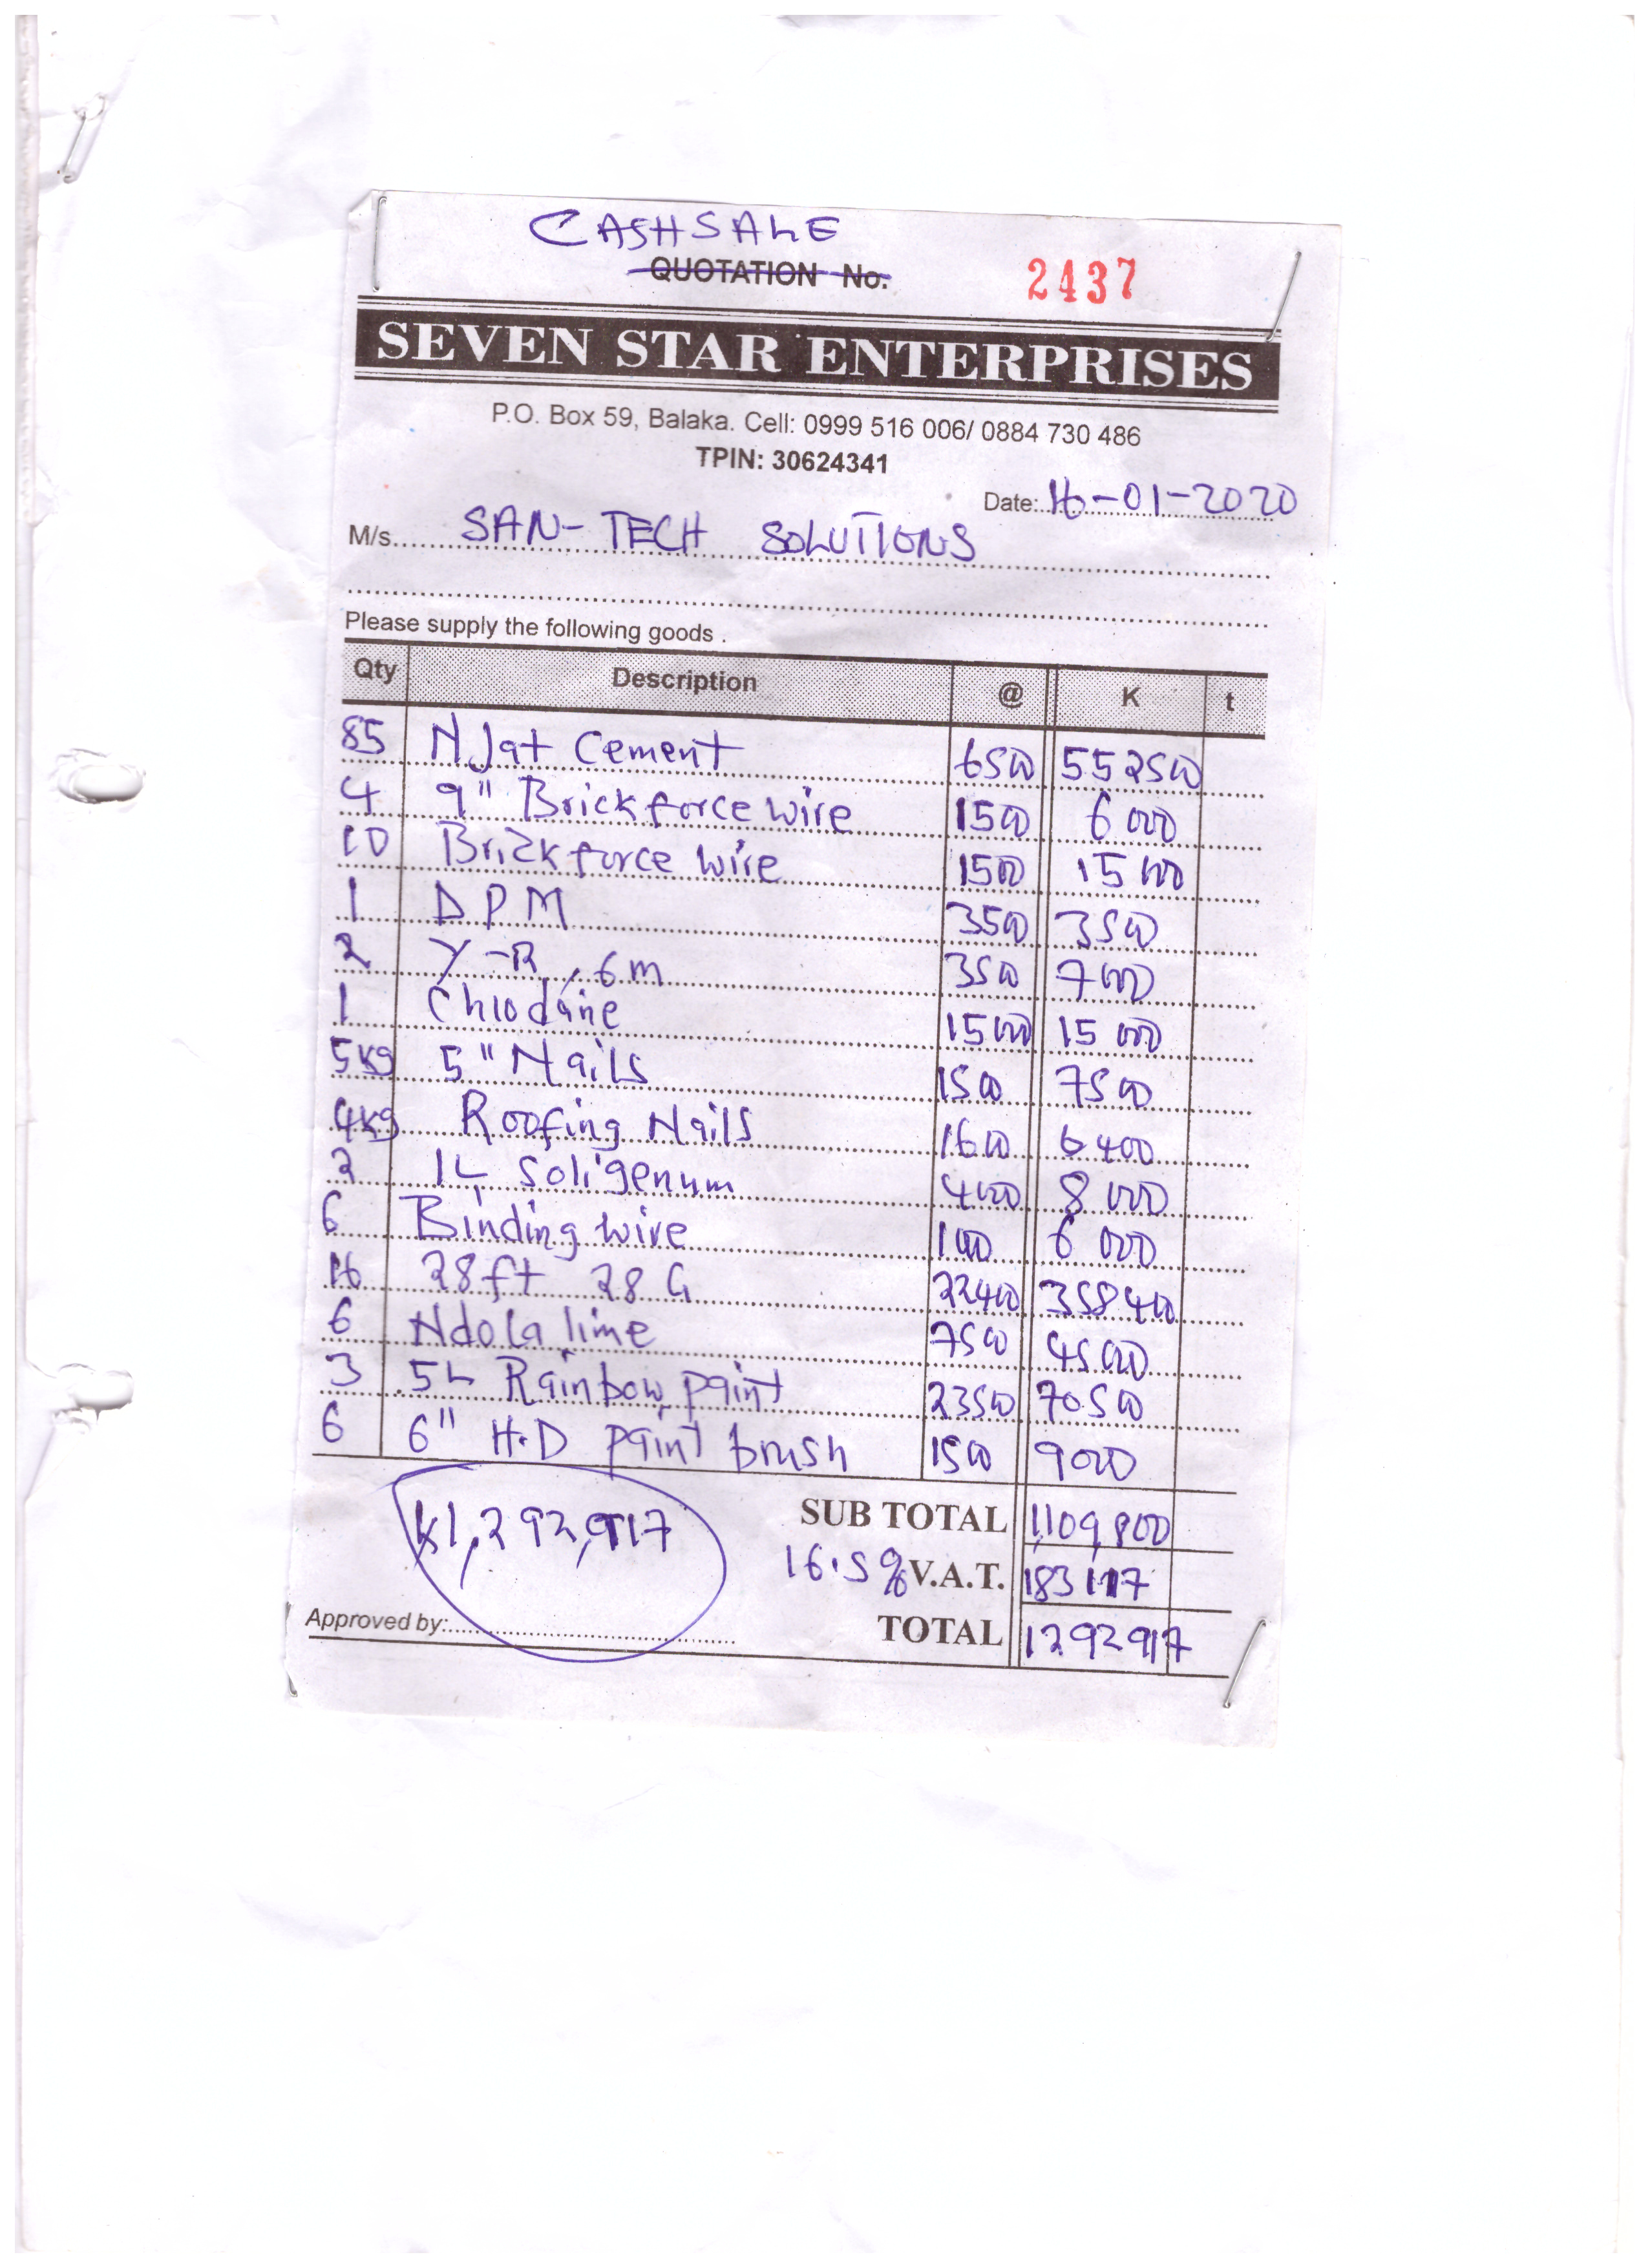 CASHSALE
QUOTATION No. 2437
SEVEN STAR ENTERPRISES
P.O. Box 59, Balaka. Cell: 0999 516 006/ 0884 730 486
TPIN: 30624341
Date: 16-01-2020
M/s. SAN-TECH SOLUTIONS
Please supply the following goods .
Qty Description @ K t
85 Njat Cement 6500 552500
4 9" Brickforce wire 1500 6000
10 Brickforce wire 1500 15000
1 DPM 3500 3500
2 Y-R, 6m 3500 7000
1 Chlodane 15000 15000
5kg 5" Nails 1500 7500
4kg Roofing Nails 1600 6400
2 1L Soligenum 4000 8000
6 Binding wire 1000 6000
16 28ft 28G 22400 358400
6 Ndola lime 7500 45000
3 5L Rainbow paint 23500 70500
6 6" H.D paint brush 1500 9000
K1,292,917
SUB TOTAL 1,109,800
16.5% V.A.T. 183117
Approved by: TOTAL 1292917